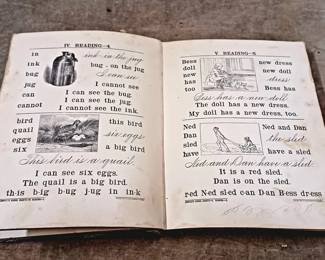 IV READING—4
in
ink
bug
jug
ink in the jug
bug - on the jug
I can see
can
can
cannot
I cannot see
I can see the bug.
I can see the jug.
I cannot see the ink.
bird
quail
eggs
six
this bird
six eggs
a big bird
This bird is a quail.
I can see six eggs.
The quail is a big bird.
th-is b-ig b-ug j-ug in in-k
V READING—5
Bess
doll
new
has
too
new dress
new doll
dress
Bess has
Bess has a new doll
The doll has a new dress.
My doll has a new dress, too.
Ned
Dan
sled
have
Ned and Dan
the sled
have a sled
Ned and Dan have a sled.
It is a red sled.
Dan is on the sled.
red Ned sled can Dan Bess dress